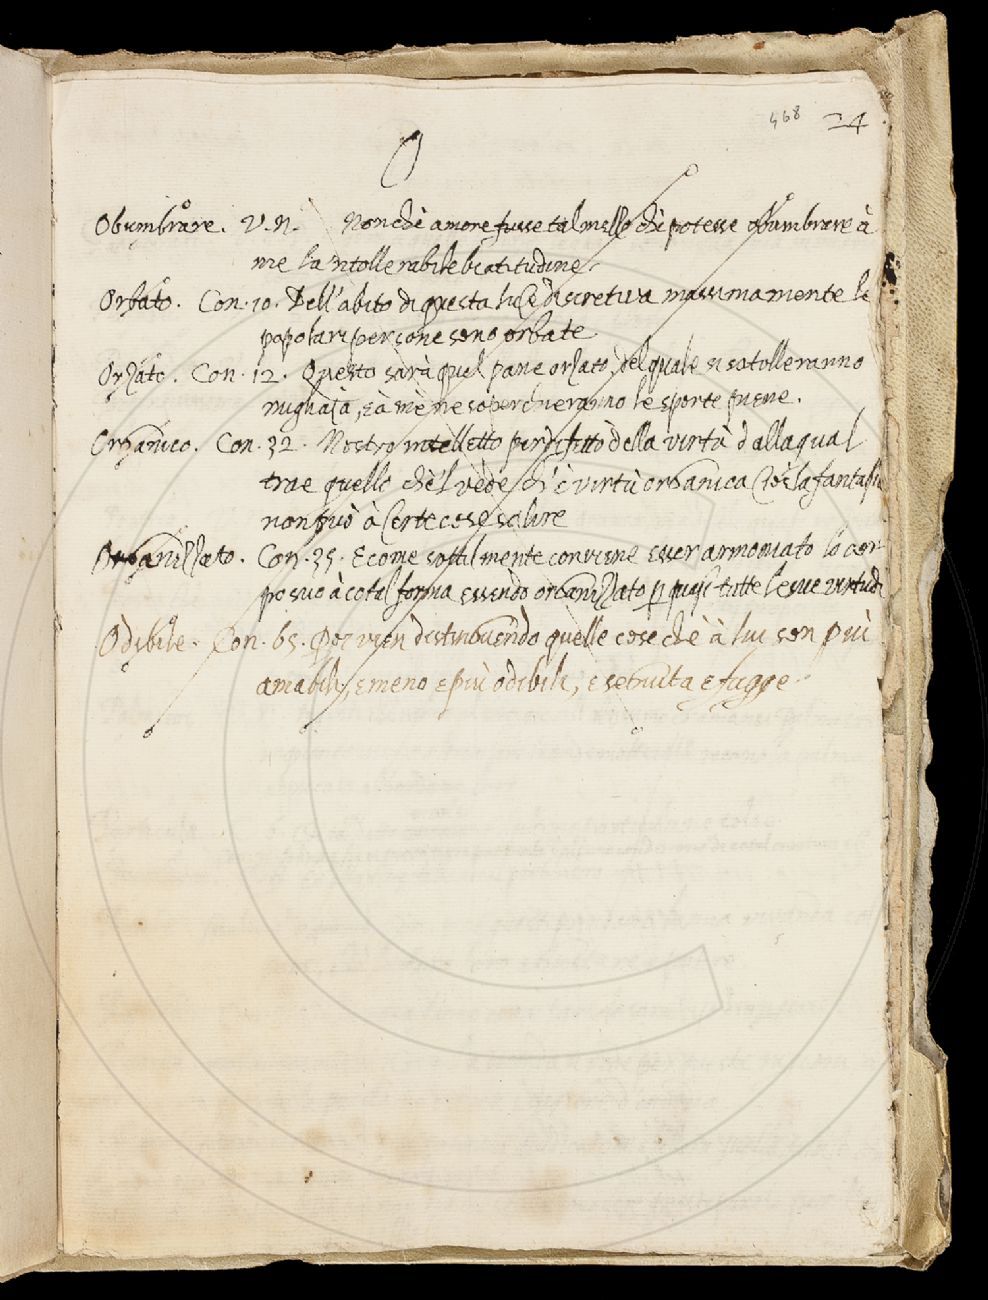 468 24
O
Obumbrare. V.N. Non chè amore fusse tal mello chè potesse obumbrare à
me la 'ntollerabile beatitudine.
Orbato. Con. 10. Dell'abito di questa luce discretiva massimamente le
popolari persone sono orbate
Orzato. Con. 12. Questo sarà quel pane orzato, del quale si satolleranno
migliaja, e à mè ne soperchieranno le sporte piene.
Organico. Con. 32. Nostro intelletto per difetto della virtù dalla qual
trae quello ch'è'l vede, ch'è virtù organica cioè la fantasia
non può à certe cose salire
Organizzato. Con. 35. E come sottilmente conviene esser armoniato lo cor-
po suo à cotal forma essendo organizzato p quasi tutte le sue virtudi
Odibile. Con. 65. Poi vien distinguendo quelle cose che à lui son più
amabili, e meno e più odibili, e seguita e fugge.